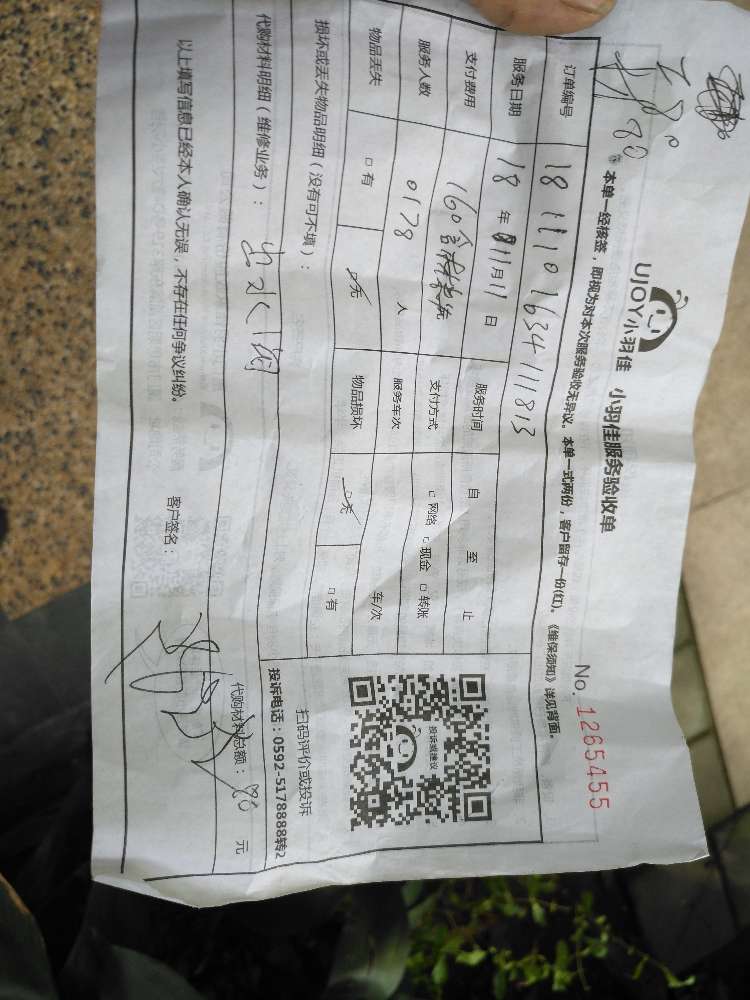 UJOY小羽佳 小羽佳服务验收单
No. 1265455
本单一经核签，即视为对本次服务验收无异议。本单一式两份，客户留存一份(红)。《维保须知》详见背面。
80
订单编号 181110163411813
服务日期 18 年 11 月 11 日 服务时间 自 至 止
支付费用 160 支付方式 □ 网络 □ 现金 □ 转账
服务人数 0178 人 服务车次 车/次
物品丢失 □ 有 □ 无 物品损坏 □ 无 □ 有
投诉或建议
扫码评价或投诉
投诉电话：0592-5178888转2
损坏或丢失物品明细（没有可不填）：
代购材料明细（维修业务）： 出水
代购材料总额： 80 元
以上填写信息已经本人确认无误，不存在任何争议纠纷。 客户签名：